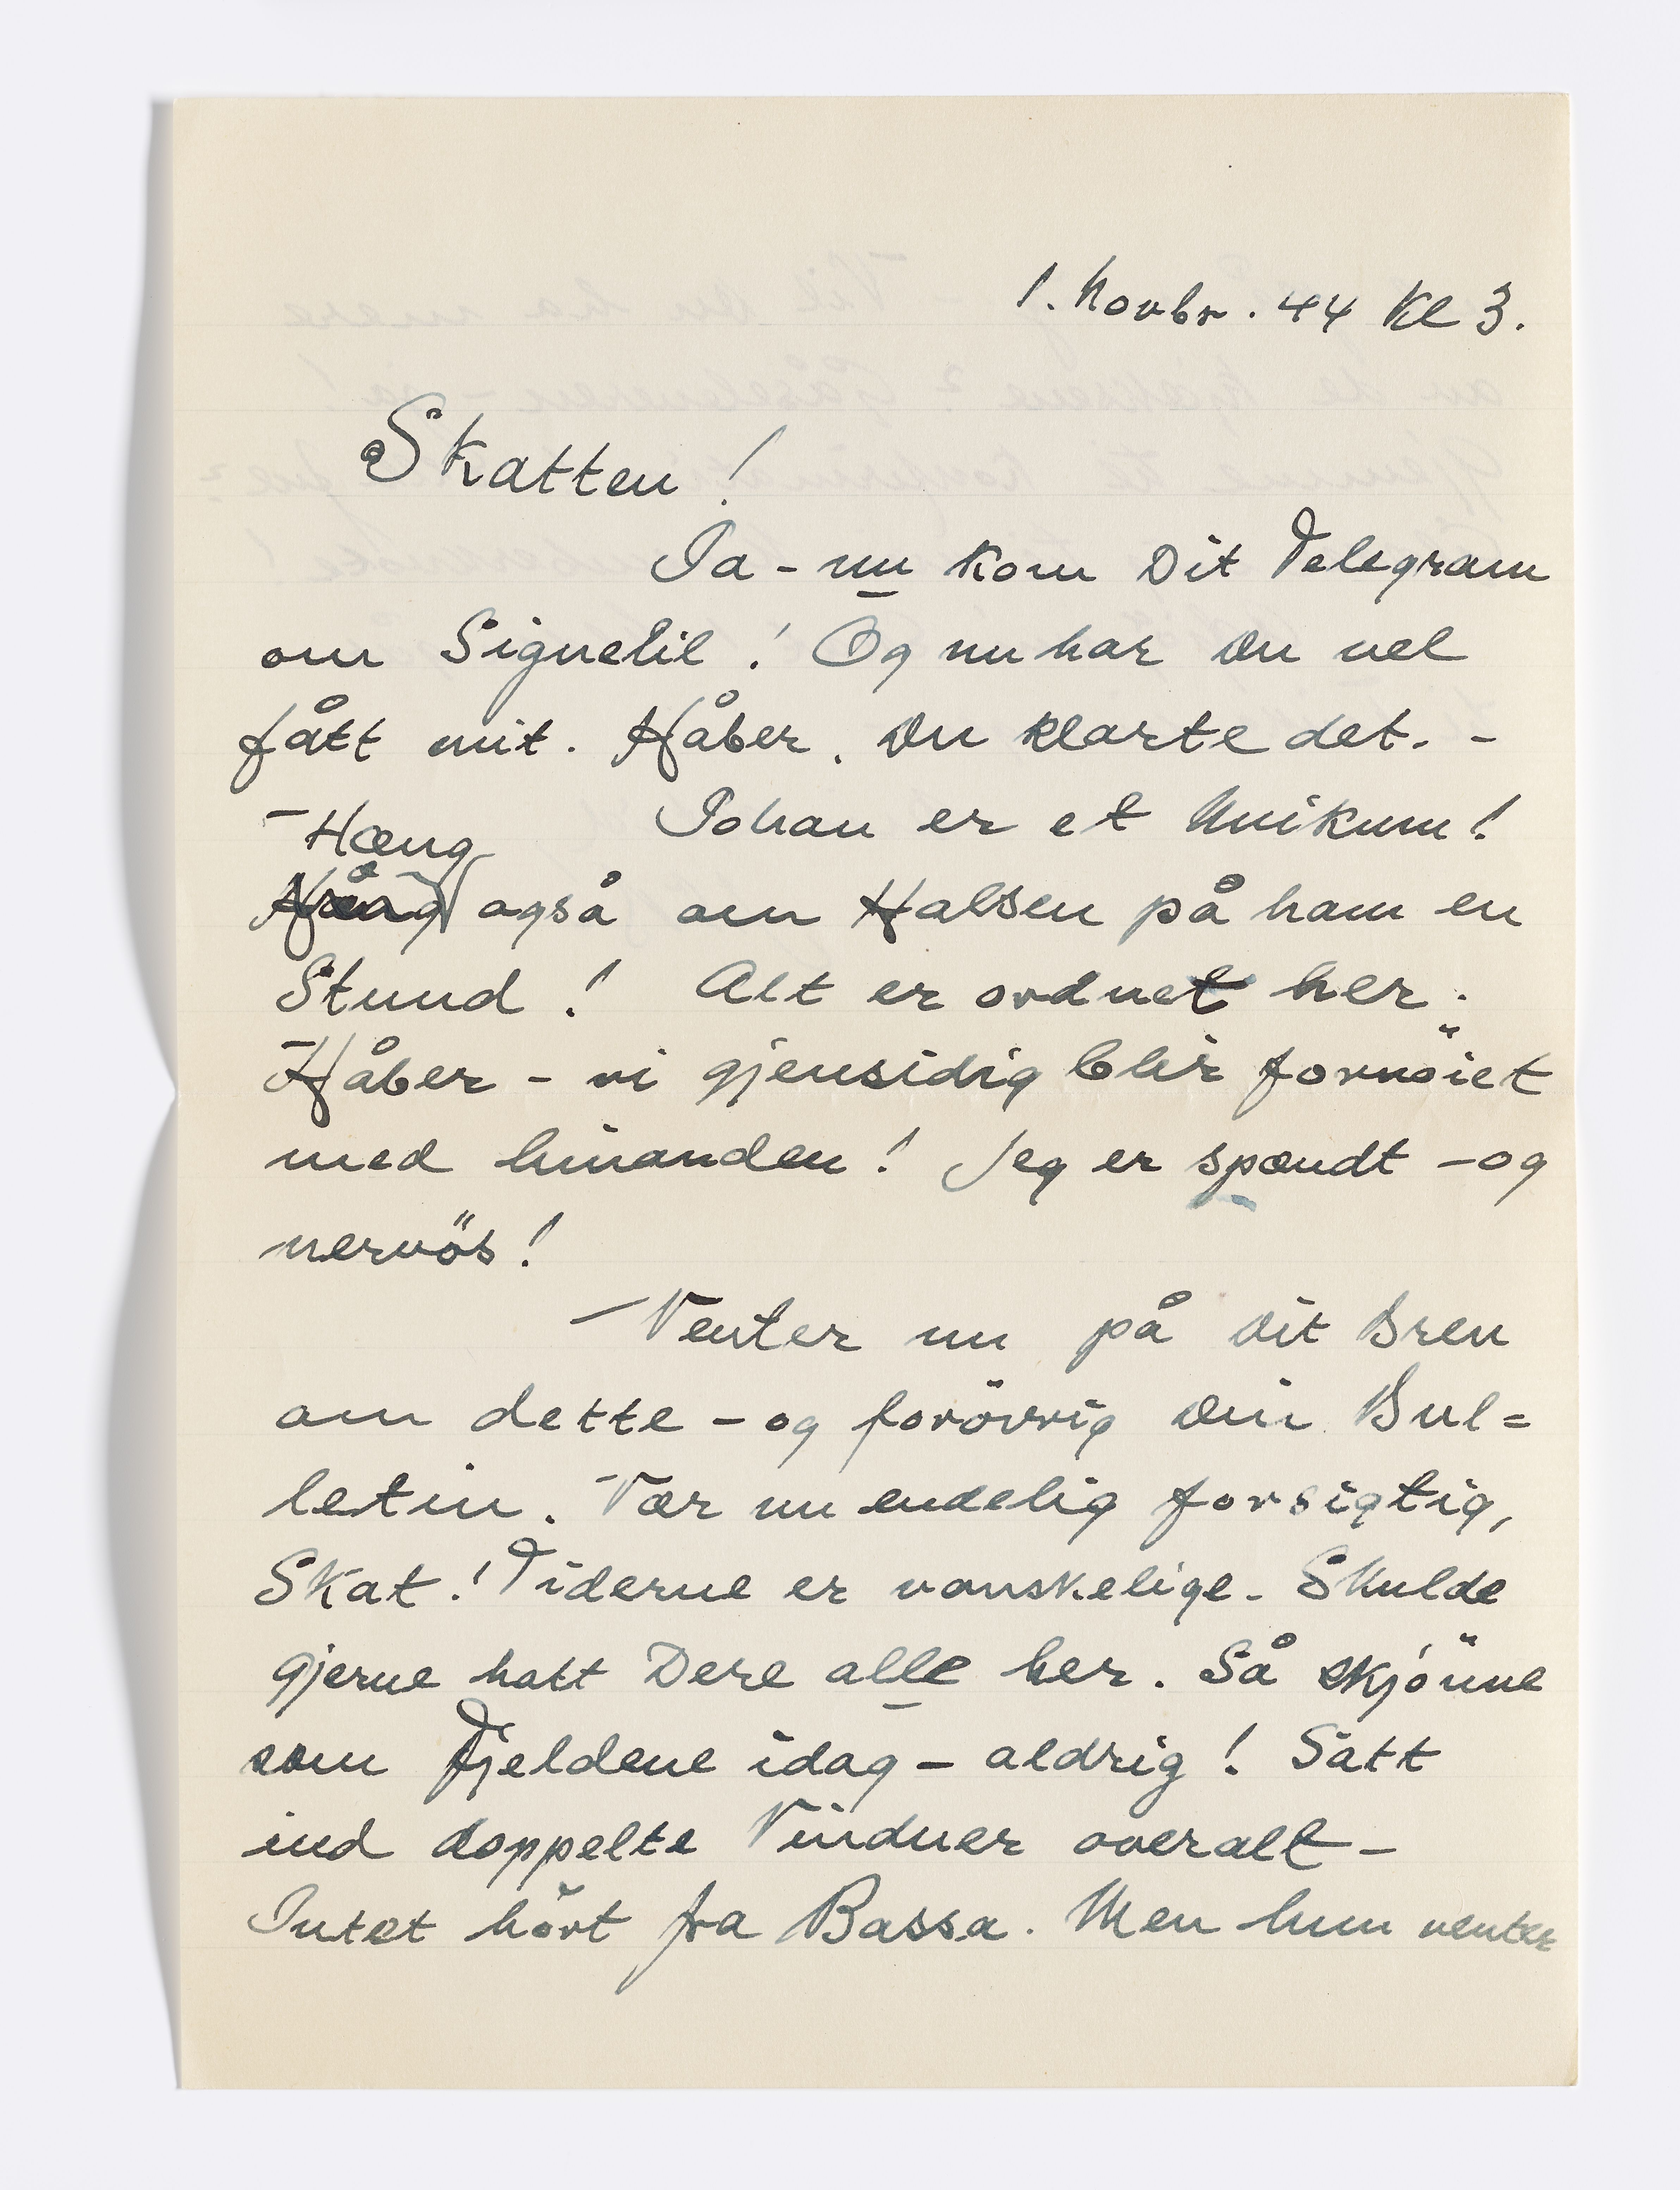 1. Novbr. 44 Kl 3.
Skatten!
Ja - nu kom Dit Telegram
om Signelil! Og nu har Du vel
fått mit. Håber. Du klarte det. -
Johan er et Unikum!
- Hæng
også om Halsen på ham en
Stund! Alt er ordnet her.
Håber - vi gjensidig blir fornöiet
med hinanden! Jeg er spændt - og
nervös!
- Venter nu på Dit Brev
om dette - og forövrig Din Bul=
letin. Vær nu endelig forsigtig,
Skat! Tiderne er vanskelige. Skulde
gjerne hatt Dere alle her. Så skjönne
som Fjeldene idag - aldrig! Satt
ind doppelte Vinduer overalt -
Intet hört fra Bassa. Men hun venter